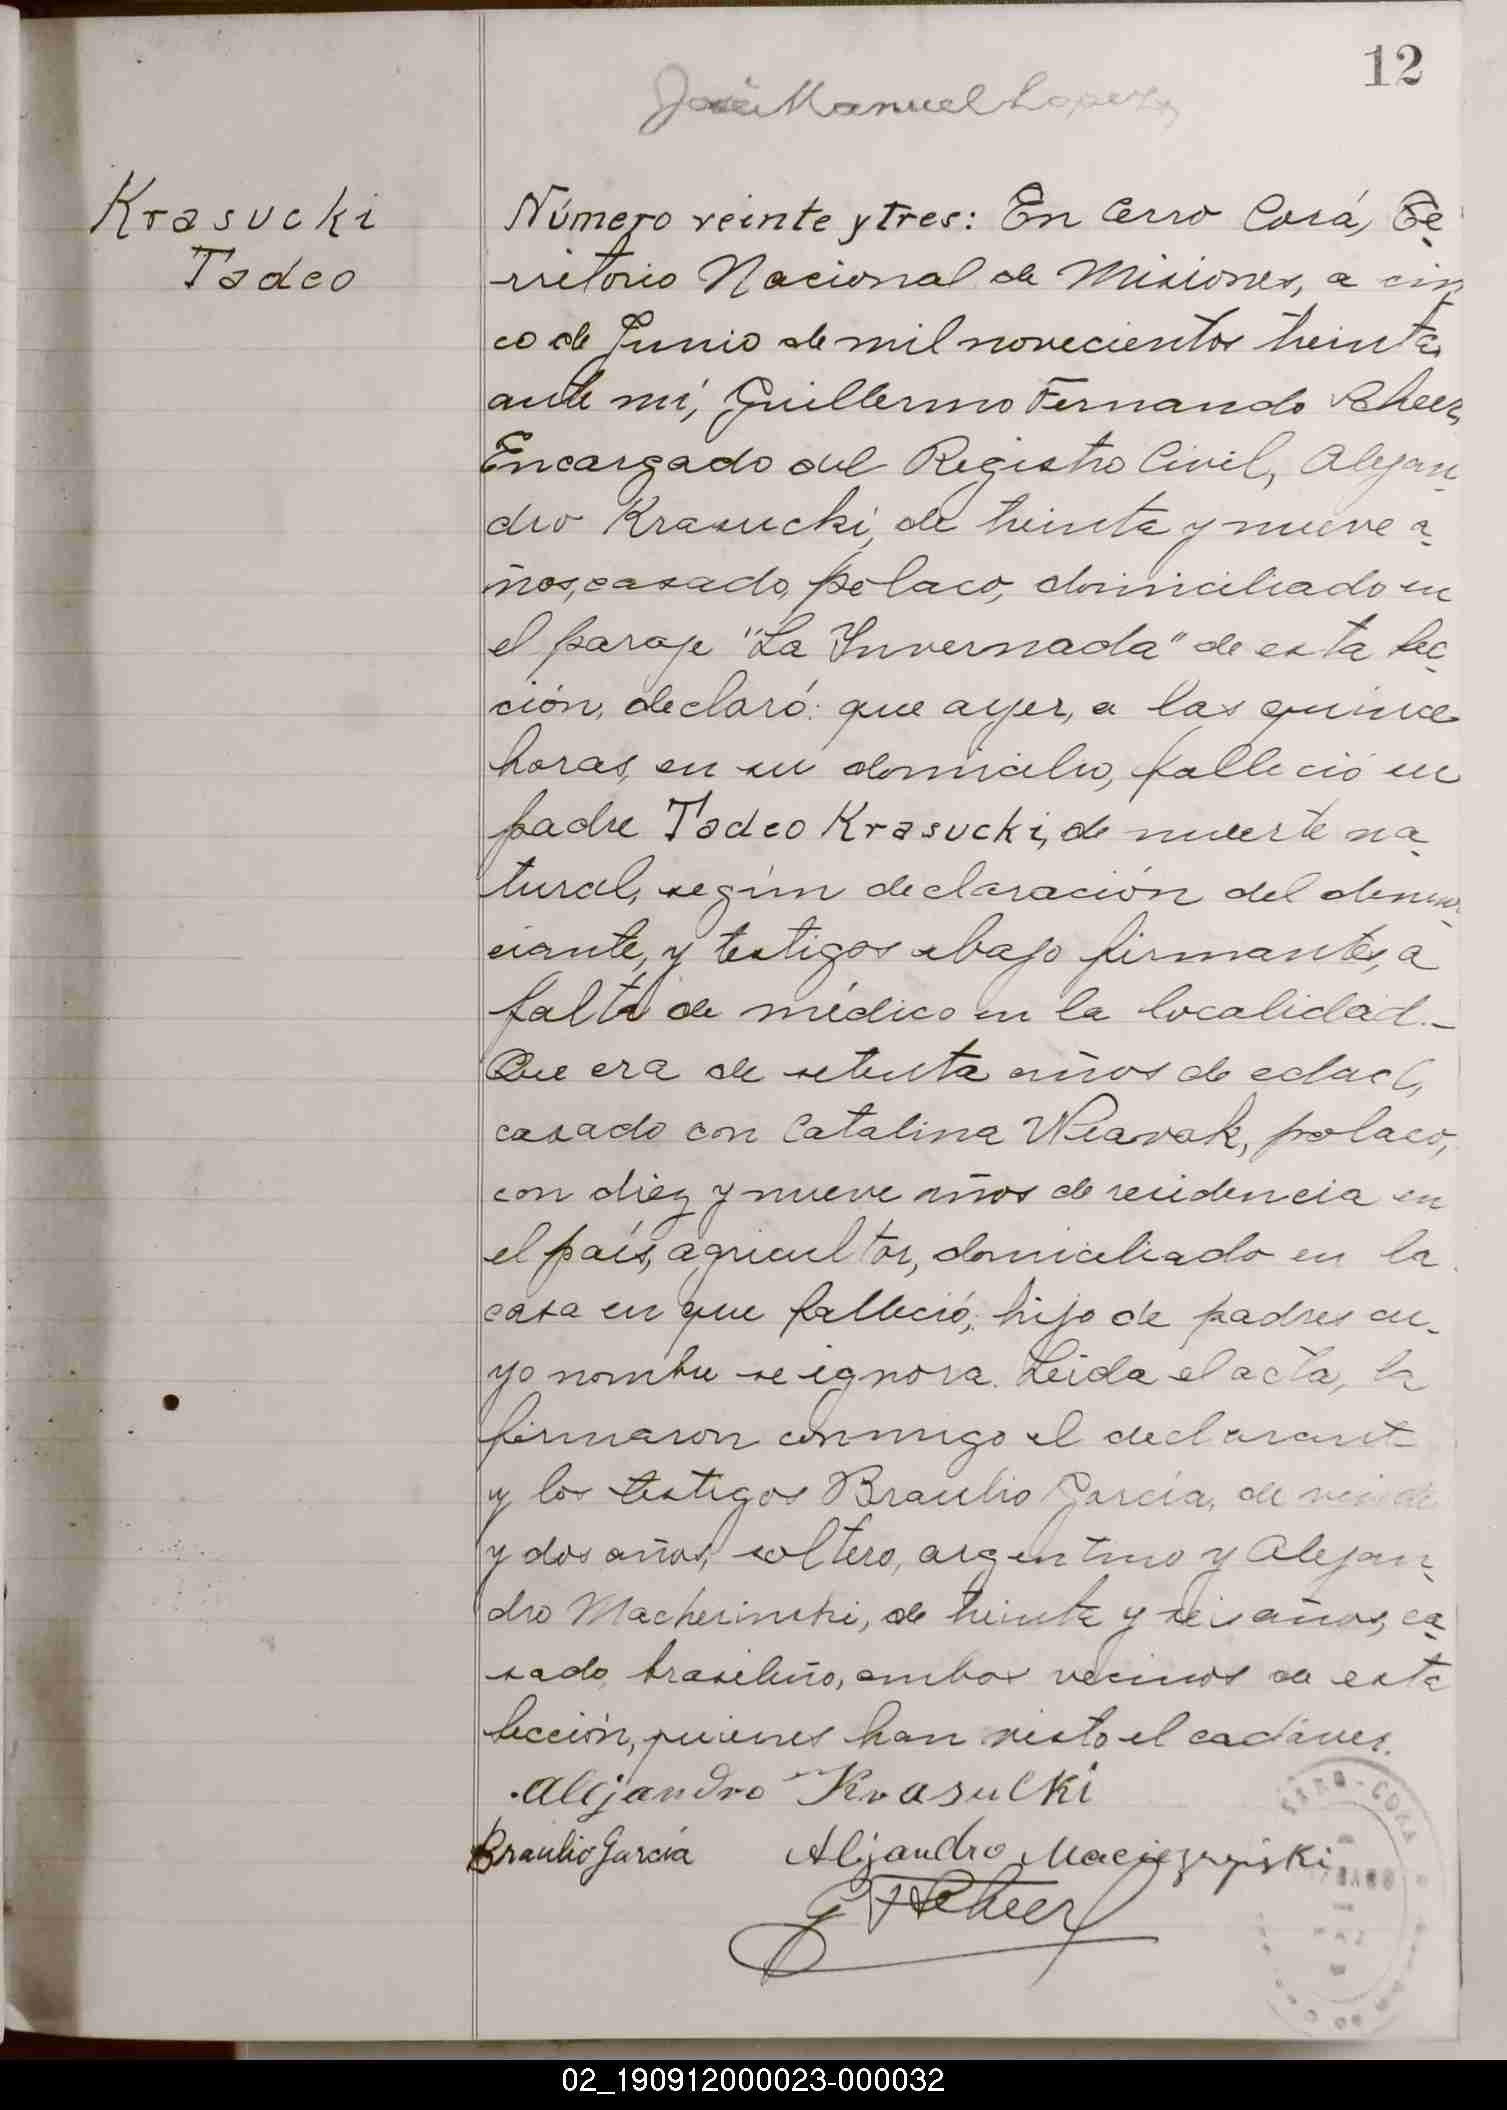 12
José Manuel Lopez
Krasucki
Tadeo
Número veinte y tres: En Cerro Corá, Te-
rritorio Nacional de Misiones, a cin-
co de Junio de mil novecientos treinta,
ante mí, Guillermo Fernando Scheer,
Encargado del Registro Civil, Alejan-
dro Krasucki, de treinta y nueve a-
ños, casado, polaco, domiciliado en
el paraje "La Invernada" de esta sec-
ción, declaró: que ayer, a las quince
horas, en su domicilio, falleció su
padre Tadeo Krasucki, de muerte na-
tural, según declaración del denun-
ciante, y testigos abajo firmantes, a
falta de médico en la localidad.-
Que era de setenta años de edad,
casado con Catalina polaco,
con diez y nueve años de residencia en
el país, agricultor, domiciliado en la
casa en que falleció; hijo de padres cu-
yo nombre se ignora. Leida el acta, la
firmaron conmigo el declarante
y los testigos Braulio García, de veinte
y dos años, soltero, argentino y Alejan-
dro Macherinski, de treinta y seis años, ca-
sado, brasileño, ambos vecinos de esta
sección, quienes han visto el cadáver.
Alejandro Krasucki
Braulio García Alejandro
G F Scheer
CERRO-CORA
02_190912000023-000032